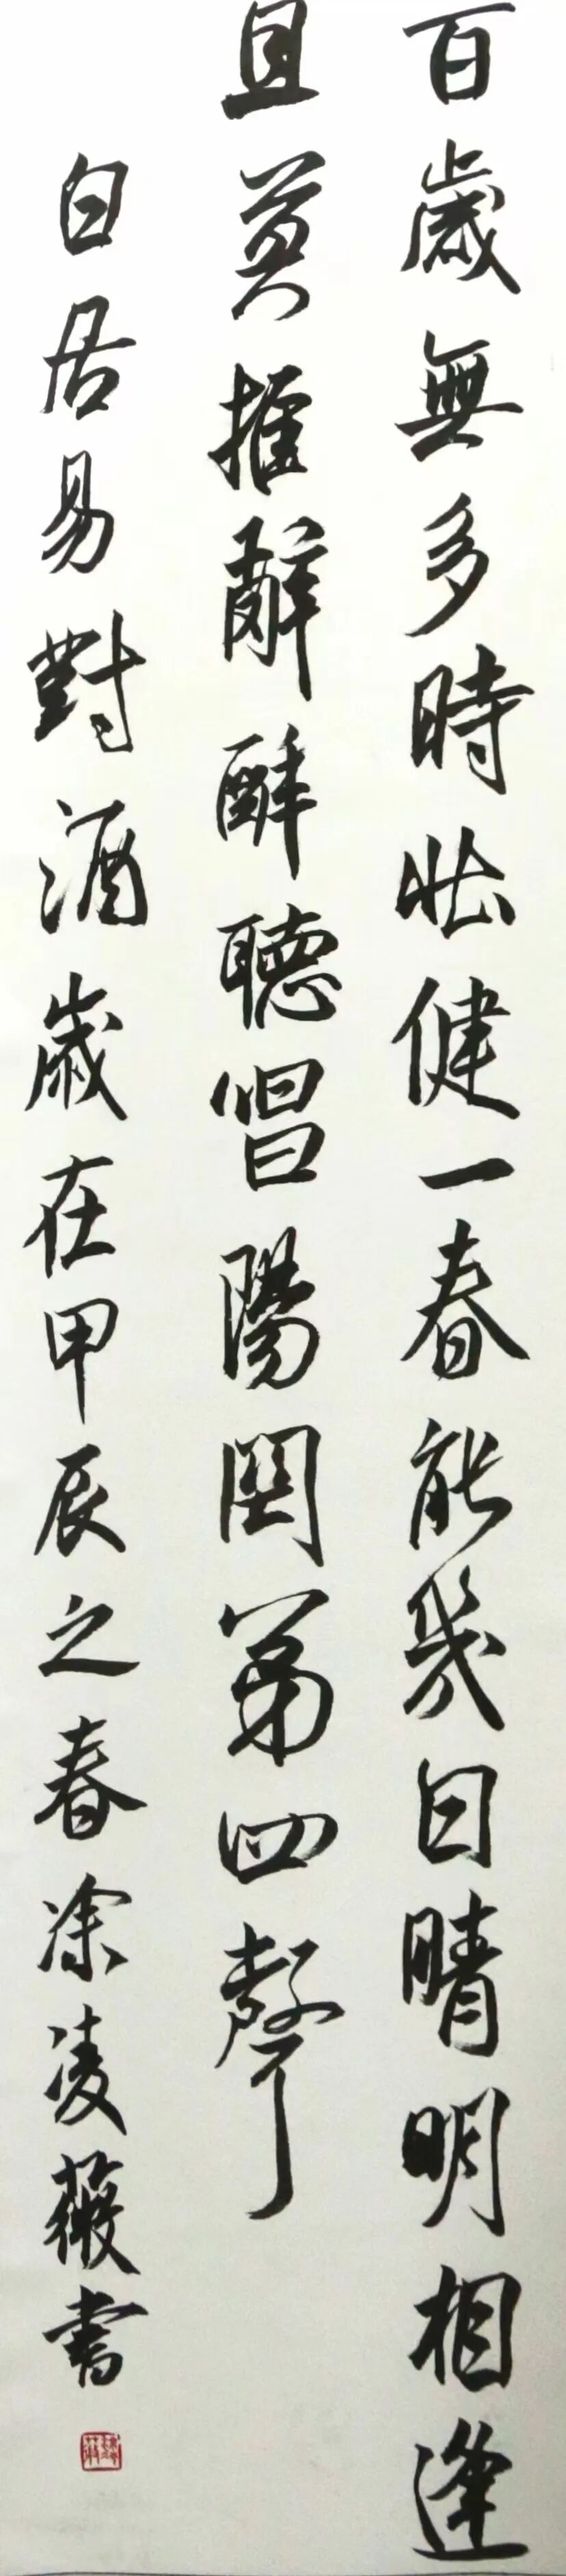 百歲無多時壯健一春能幾日晴明相逢
且莫推辭醉聽唱陽関第四聲
白居易對酒歲在甲辰之春涂凌薇書